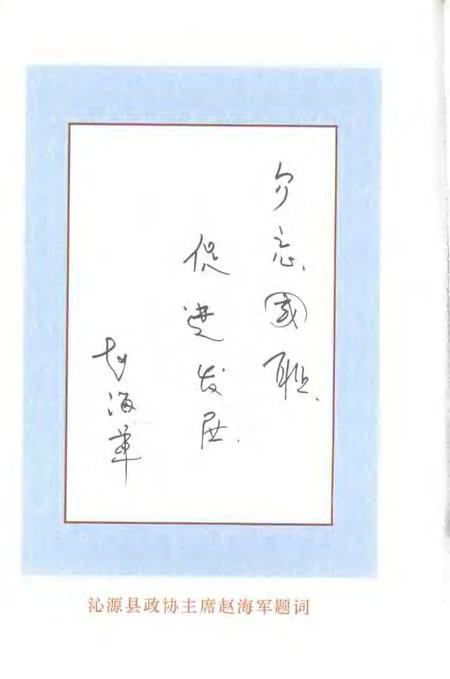 勿忘國耻
促进发展
赵海军
沁源县政协主席赵海军题词